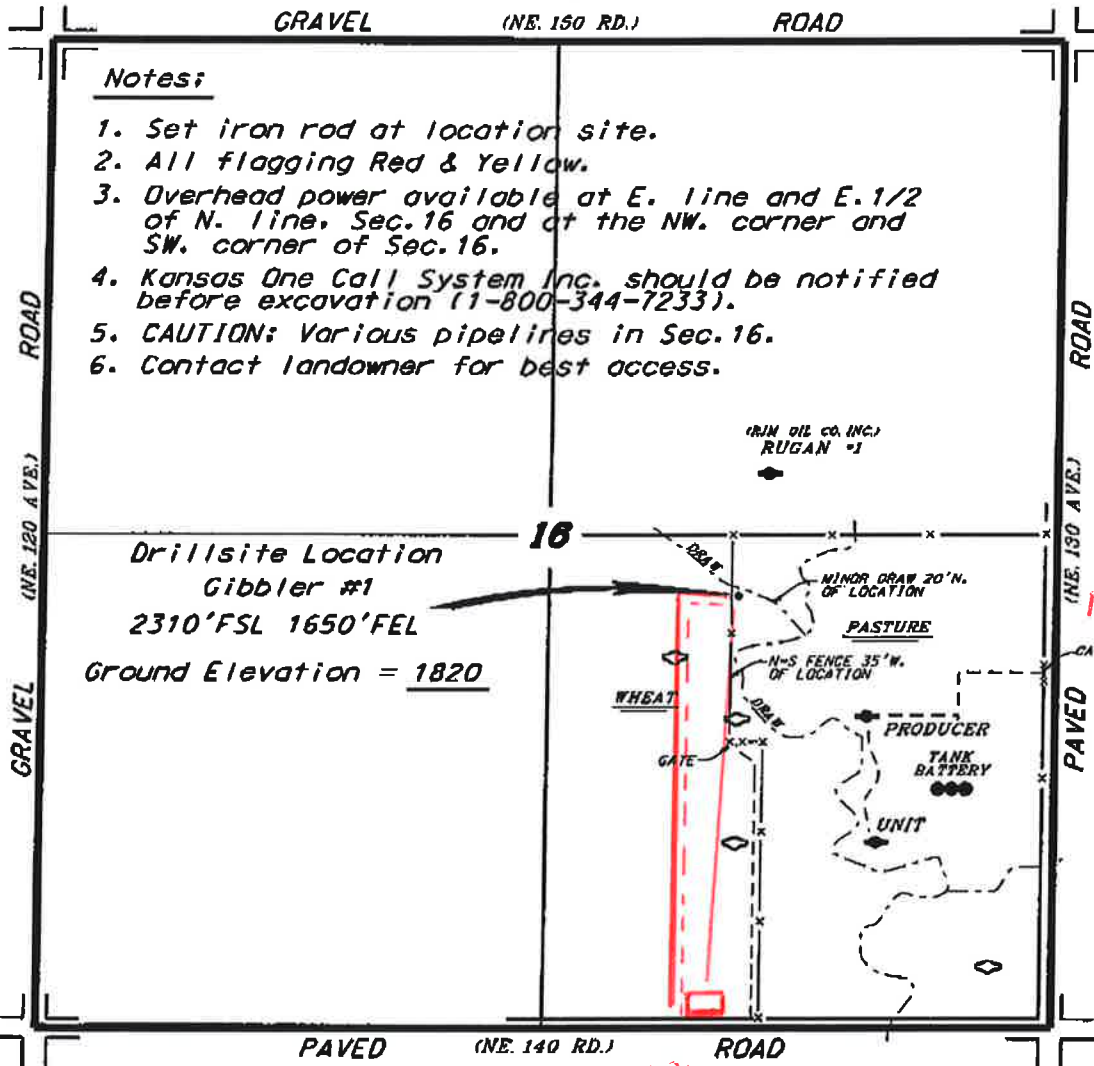 GRAVEL (NE. 150 RD.) ROAD
Notes:
1. Set iron rod at location site.
2. All flagging Red & Yellow.
3. Overhead power available at E. line and E.1/2
of N. line, Sec.16 and at the NW. corner and
SW. corner of Sec.16.
4. Kansas One Call System Inc. should be notified
before excavation (1-800-344-7233).
5. CAUTION: Various pipelines in Sec.16.
6. Contact landowner for best access.
GRAVEL (NE. 120 AVE.) ROAD
PAVED (NE. 130 AVE.) ROAD
(RJM OIL CO. INC.)
RUGAN #1
16
Drillsite Location
Gibbler #1
2310'FSL 1650'FEL
Ground Elevation = 1820
DRAW
MINOR DRAW 20'N.
OF LOCATION
PASTURE
N-S FENCE 35'W.
OF LOCATION
WHEAT
DRAW
GATE
PRODUCER
TANK
BATTERY
UNIT
PAVED (NE. 140 RD.) ROAD